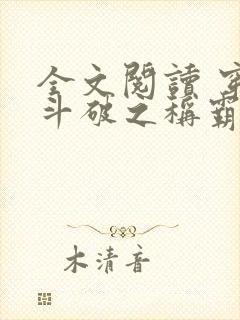 全文閱讀 穿
斗破之稱霸
木清音